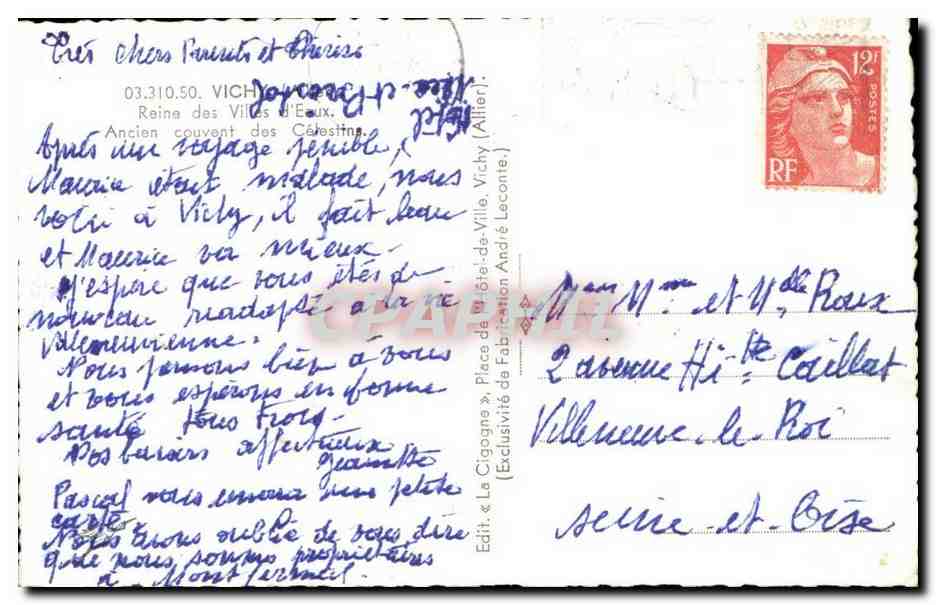 Très chers Parents et Thérèse
03.310.50. VICHY
Reine des Villes d'Eaux.
Ancien couvent des Célestins.
et Pascal
Après un voyage pénible,
Maurice était malade, nous
voici à Vichy, il fait beau
et Maurice va mieux.
J'espère que vous êtes de
nouveau réadaptés à la vie
Villeneuvienne.
Nous pensons bien à vous
et vous espérons en bonne
santé tous trois.
Nos baisers affectueux
Jeannette
Pascal vous envoie une petite
carte.
Nous avons oublié de vous dire
que nous sommes propriétaires
à Montfermeil.
Edit. « La Cigogne », Place de l'Hôtel-de-Ville, Vichy (Allier).
(Exclusivité de Fabrication André Leconte.)
12F
POSTES
RF
CPAPHIL
Mr Mme et Mlle Roux
2 avenue Hte Caillat
Villeneuve le Roi
Seine-et-Oise